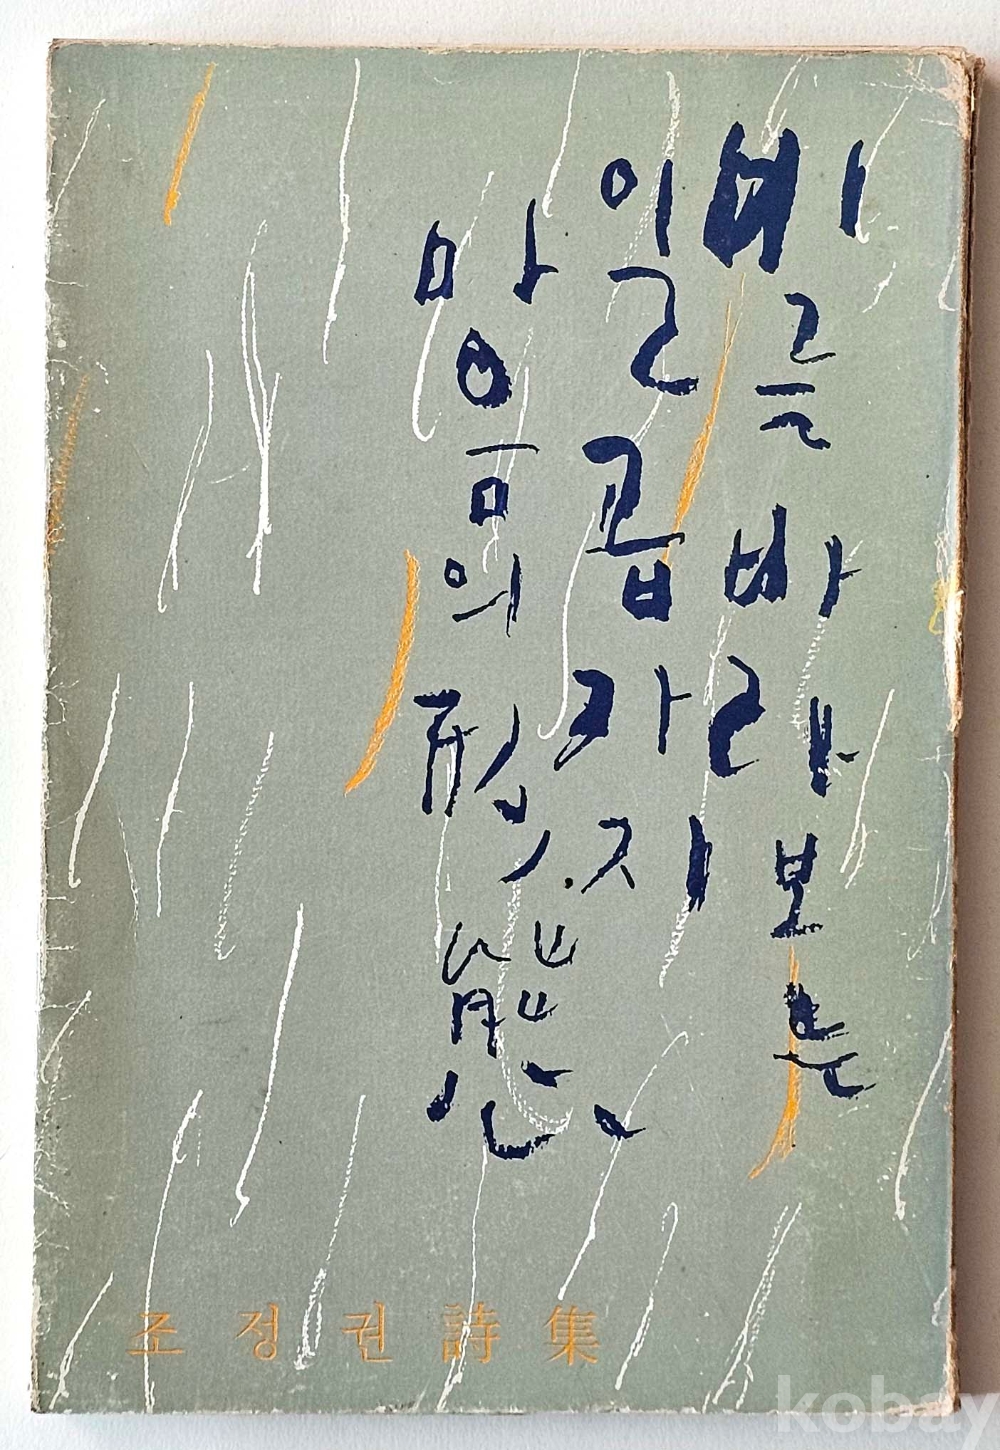 비를 바라보는
일곱가지
마음의 形態
조정권 詩集
kobay